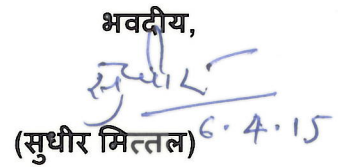 भवदीय,
सुधीर
6.4.15
(सुधीर मित्तल)